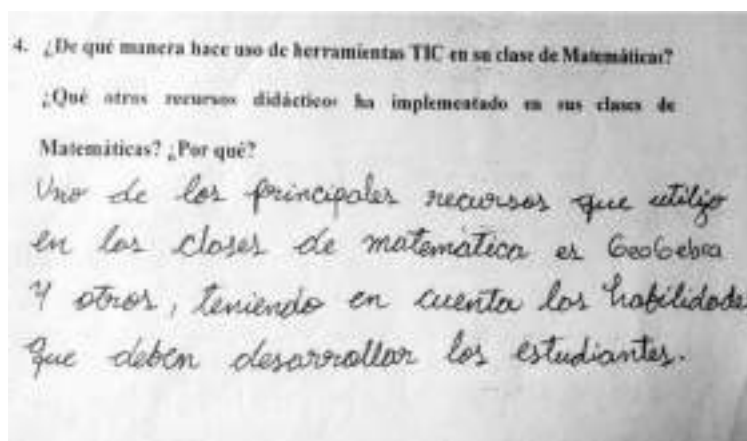 4. ¿De qué manera hace uso de herramientas TIC en su clase de Matemáticas?
¿Qué otros recursos didácticos ha implementado en sus clases de
Matemáticas? ¿Por qué?
Uno de los principales recursos que utilizo
en las clases de matemática es GeoGebra
Y otros, teniendo en cuenta las habilidades
que deben desarrollar los estudiantes.